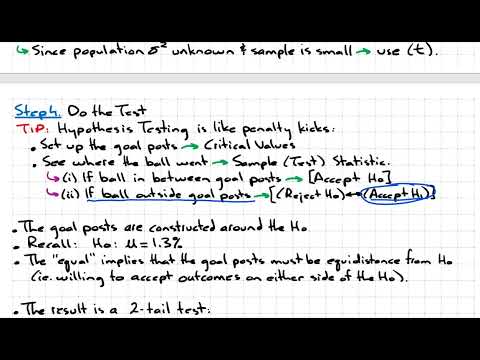 ↳ Since population σ² unknown & sample is small → use (t).
Step 4. Do the Test
TIP: Hypothesis Testing is like penalty kicks:
• Set up the goal posts → Critical Values
• See where the ball went → Sample (Test) Statistic.
↳ (i) If ball in between goal posts → [Accept H₀]
↳ (ii) If ball outside goal posts → [(Reject H₀) ↔ (Accept H₁)]
• The goal posts are constructed around the H₀
• Recall: H₀: μ = 1.3%
• The "equal" implies that the goal posts must be equidistance from H₀
(ie. willing to accept outcomes on either side of the H₀).
• The result is a 2-tail test: